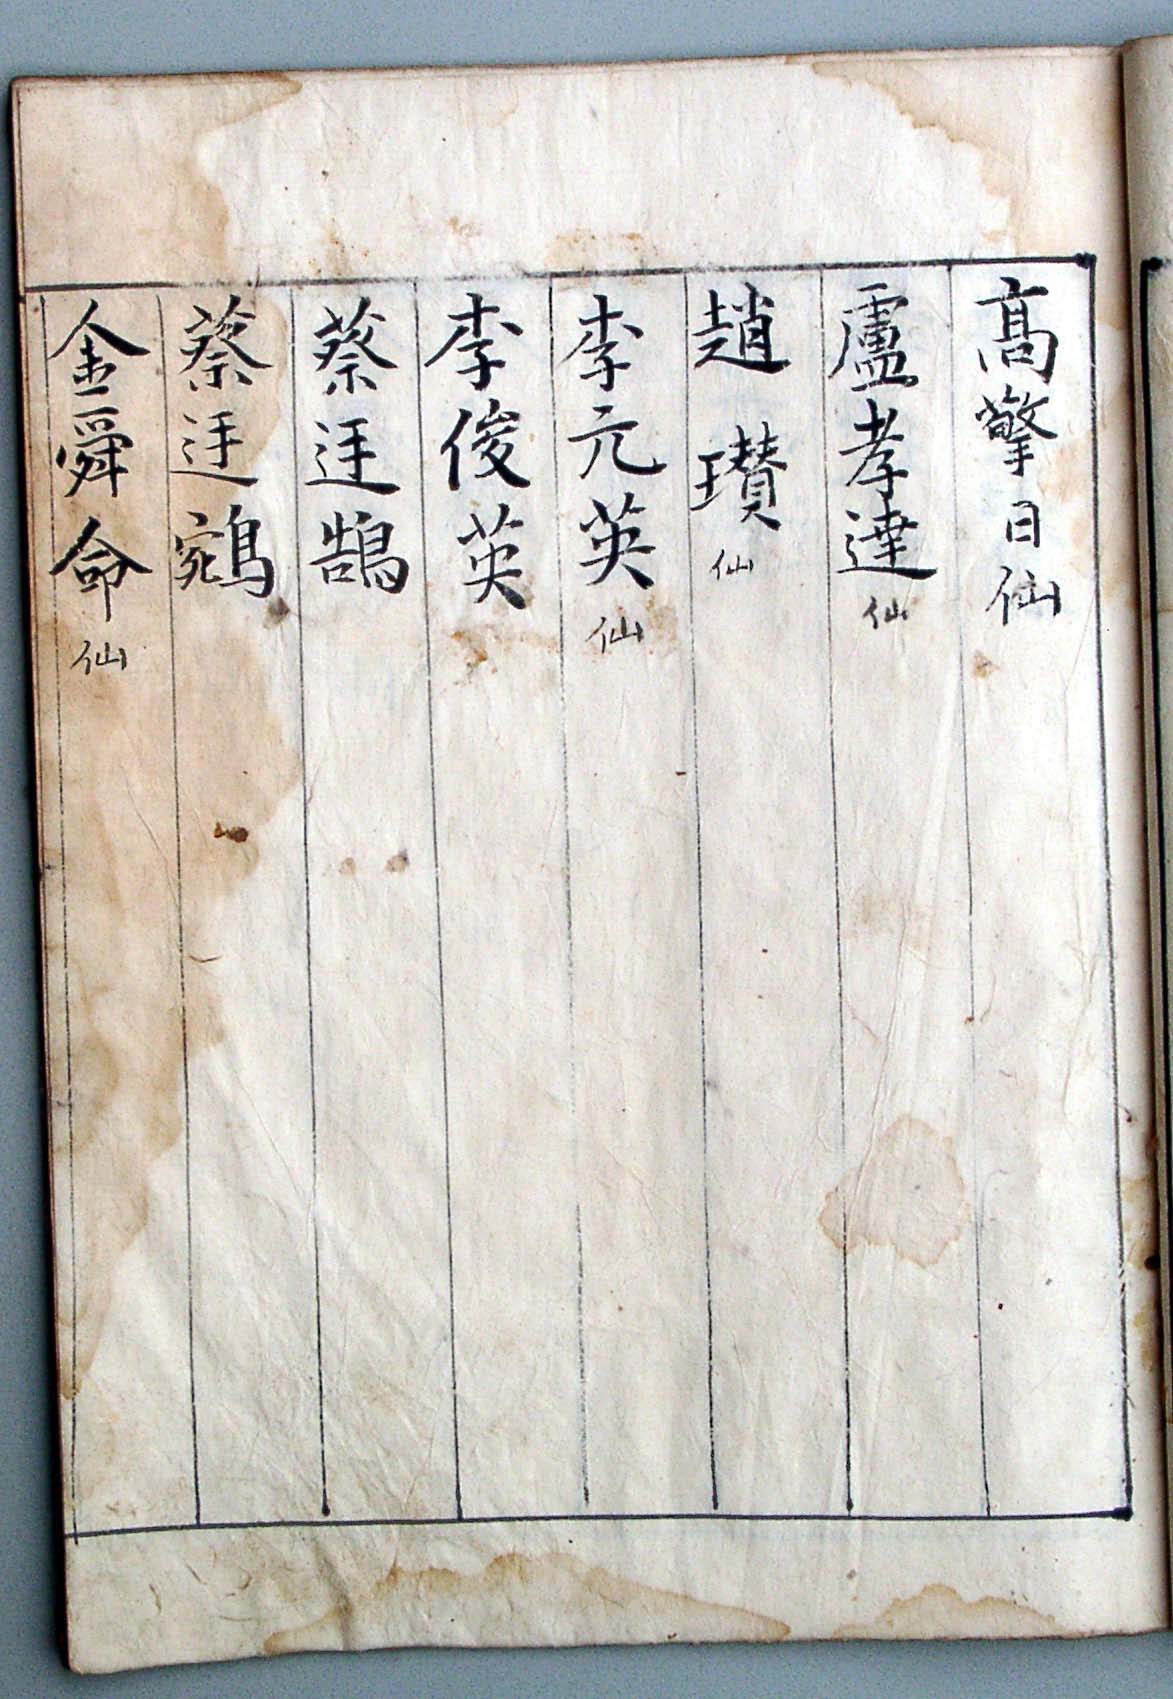 高擎日仙
盧孝達仙
趙瓚仙
李元英仙
李俊英
蔡廷鵠
蔡廷鵷
金舜命仙